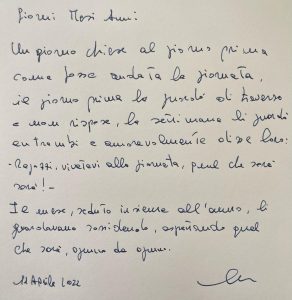 Giorni Mesi Anni:
Un giorno chiese al giorno prima
come fosse andata la giornata,
il giorno prima lo guardò di traverso
e non rispose, la settimana li guardò
entrambi e amorevolmente disse loro:
- Ragazzi, vivetevi alla giornata, quel che sarà
sarà! -
Il mese, seduto insieme all'anno, li
guardavano sorridendo, aspettando quel
che sarà, ognuno da ognuno.
11 Aprile 2022